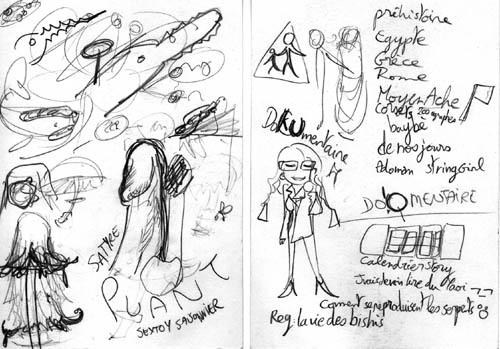 SATYRE
PUANT
SEXTOY SAVONNIER
préhistoire
Egypte
Grèce
Rome
MoyenAche
corsets
baybe
de nos jours
string Girl
DoKUmentaire
DoQUMENTAIRE
Calendrier Story
J'vais devenir
Comment se reproduisent les serpents
Reg la vie des bishis